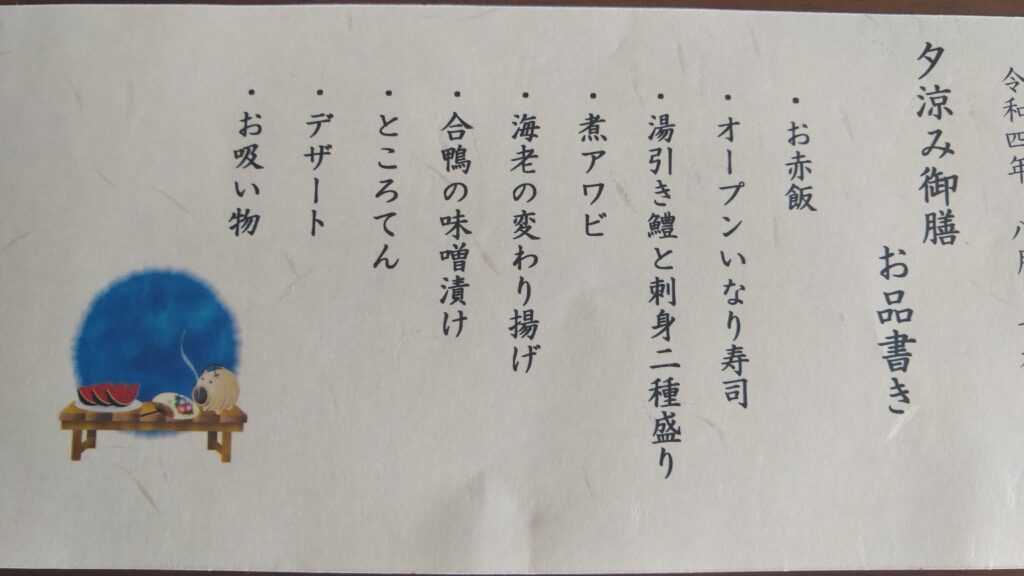 令和四年 八月
夕涼み御膳
お品書き
・お赤飯
・オープンいなり寿司
・湯引き鱧と刺身二種盛り
・煮アワビ
・海老の変わり揚げ
・合鴨の味噌漬け
・ところてん
・デザート
・お吸い物